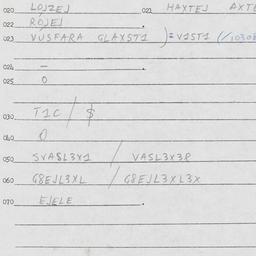 020 LOJZEJ 021 HAXTEJ AXTE
022 ROJEJ .
023 VUSFARA GLAXST1 ) = V1ST1 (/10308
024 — .
025 0
030 T1C / $
040 0
050 SVASL3X1 / VASL3X3R
060 G8EJL3XL / G8EJL3XL3X
070 EJELE .